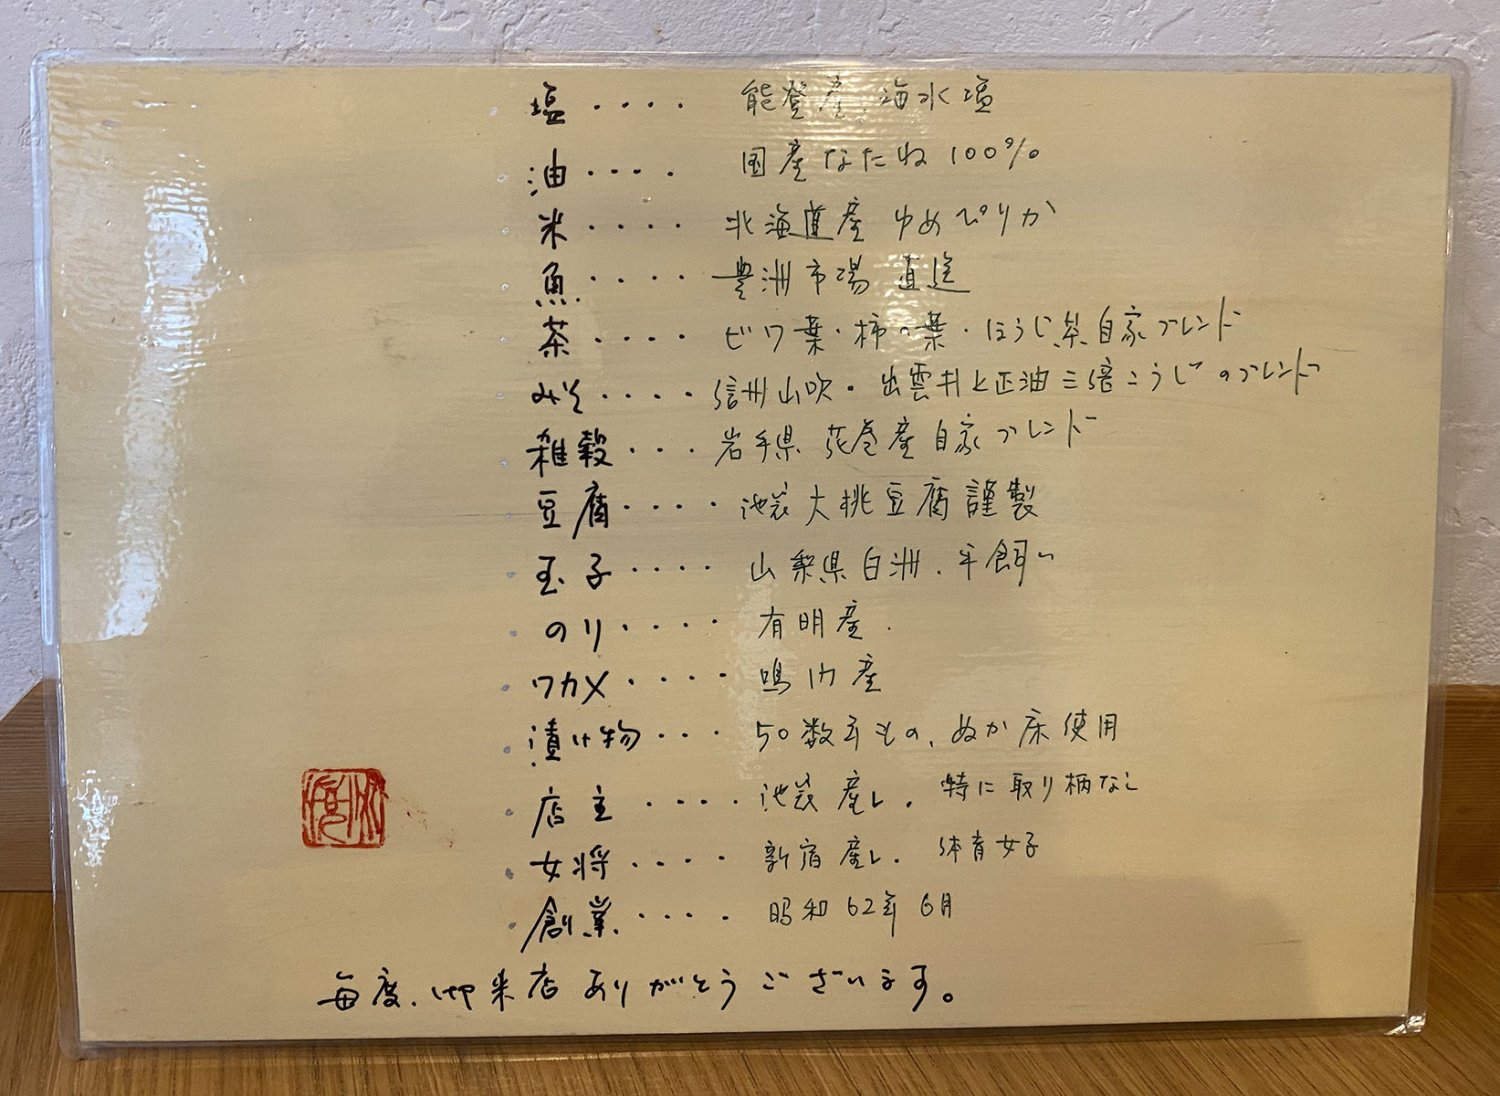 塩・・・・ 能登産 海水塩
油・・・・ 国産なたね100%
米・・・・ 北海道産 ゆめぴりか
魚・・・・ 豊洲市場 直送
茶・・・・ ビワ葉・柿の葉・ほうじ茶自家ブレンド
みそ・・・・ 信州山吹・出雲井上正油三倍こうじのブレンド
雑穀・・・ 岩手県 花巻産自家ブレンド
豆腐・・・・ 池袋大桃豆腐謹製
玉子・・・・ 山梨県白洲、平飼い
のり・・・・ 有明産.
ワカメ・・・・ 鳴門産
漬け物・・・ 50数年もの、ぬか床使用
店主・・・・ 池袋産し. 特に取り柄なし
女将・・・・ 新宿産し. 体育女子
創業・・・・ 昭和62年6月
毎度、御来店ありがとうございます。